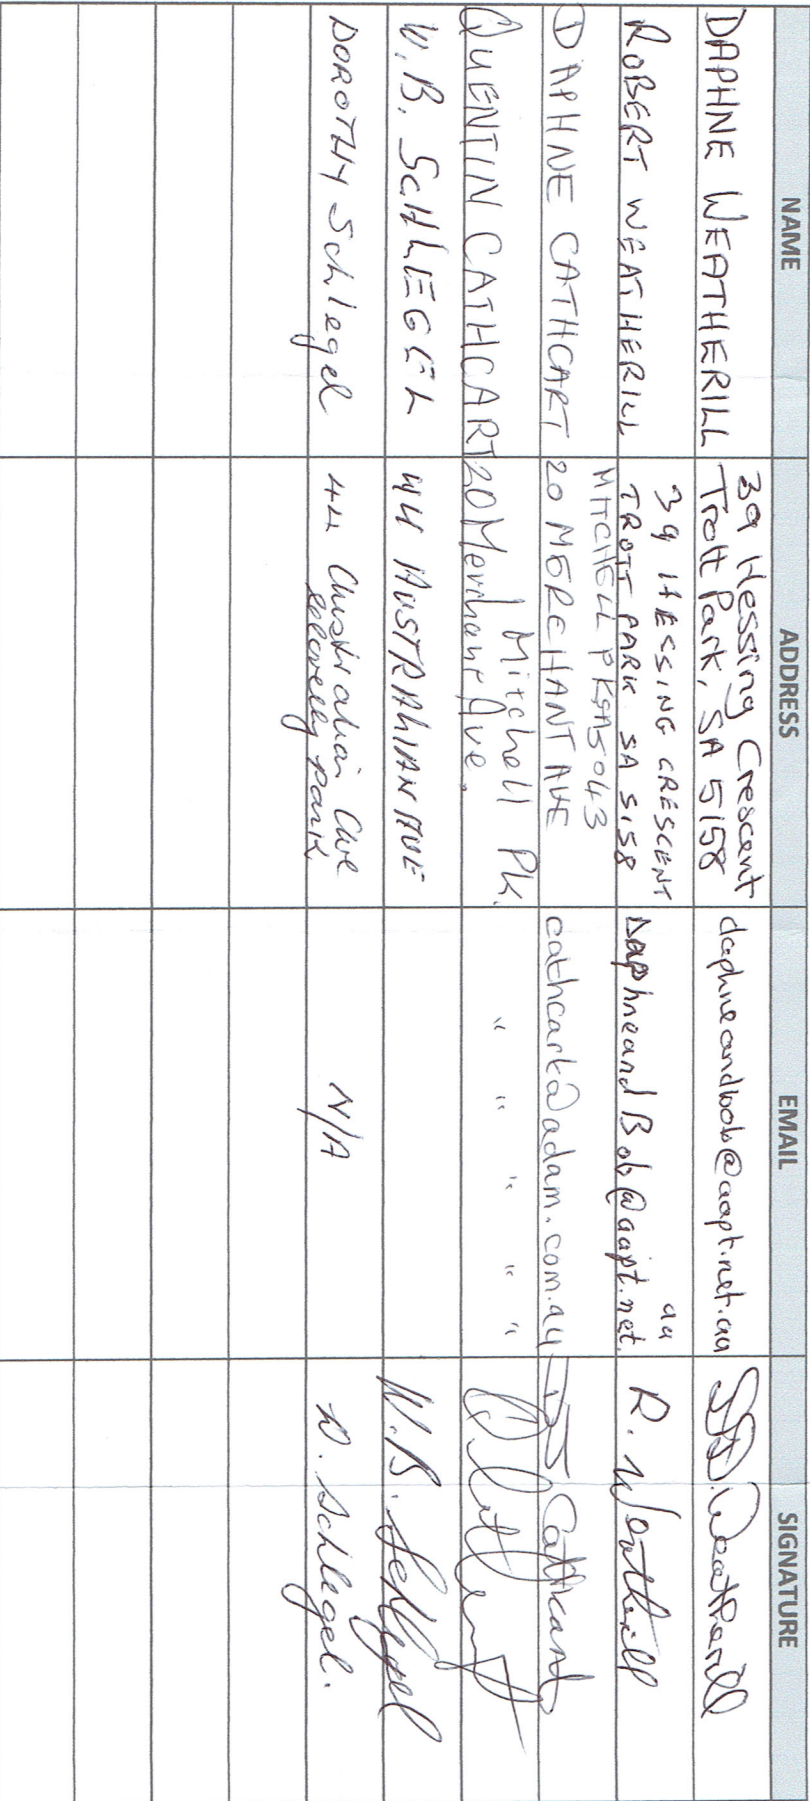 NAME ADDRESS EMAIL SIGNATURE
DAPHNE WEATHERILL 39 Hessing Crescent
Trott Park, SA 5158 daphneandbob@aapt.net.au D. Weatherill
ROBERT WEATHERILL 39 HESSING CRESCENT
TROTT PARK SA 5158 DaphneandBob@aapt.net.au R. Weatherill
DAPHNE CATHCART 20 MERCHANT AVE
MITCHELL PK SA 5043 cathcart@adam.com.au D Cathcart
QUENTIN CATHCART 20 Merchant Ave.
Mitchell Pk. " " " " "
W. B. SCHLEGEL 44 AUSTRALIAN AVE W. B. Schlegel
DOROTHY Schlegel 44 Australian Ave
Clovelly Park N/A D. Schlegel.